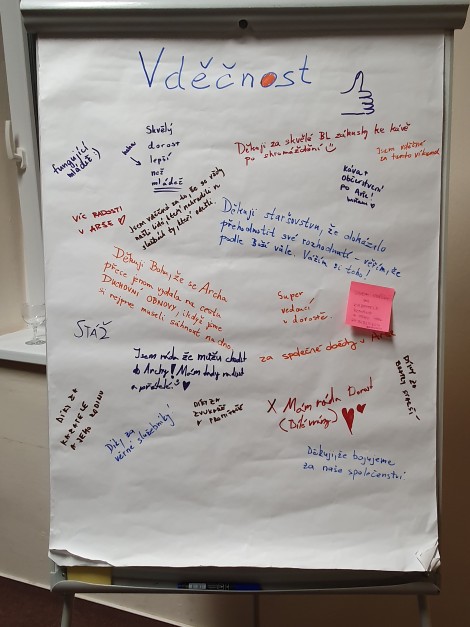 Vděčnost
fungující
mládež :)
Skvělý
dorost
lepší
než
mládež
Děkuji za skvělé BL zákusky ke kávě
po shromáždění
Jsem vděčná
za tento víkend
Káva +
občerstvení
po
VÍC RADOSTI
V ARŠE
Jsem vděčná za to, že se vždy
našli lidi, kteří nahradili
službou ty, kteří odešli.
Děkuji staršovstvu, že dokázalo
přehodnotit své rozhodnutí - věřím, že
podle Boží vůle. Vážím si toho!
Děkuji Bohu, že se Archa
přece jenom vydala na cestu
DUCHOVNÍ OBNOVY, i když jsme
si nejprve museli sáhnout na dno.
Super
vedoucí
v dorostě
STÁŽ
za společné obědy v
Jsem ráda že můžu chodit
do Archy! Mám tady radost
a přátele!
DÍKY ZA
KAZATELE
A JEHO RODINU
Díky za
věrné služebníky
DÍKY ZA
ZVUKAŘE
A PROMÍTAČE
X Mám ráda Dorost
(Díté vrány)
DÍKY ZA
Děkuji, že bojujeme
za naše společenství